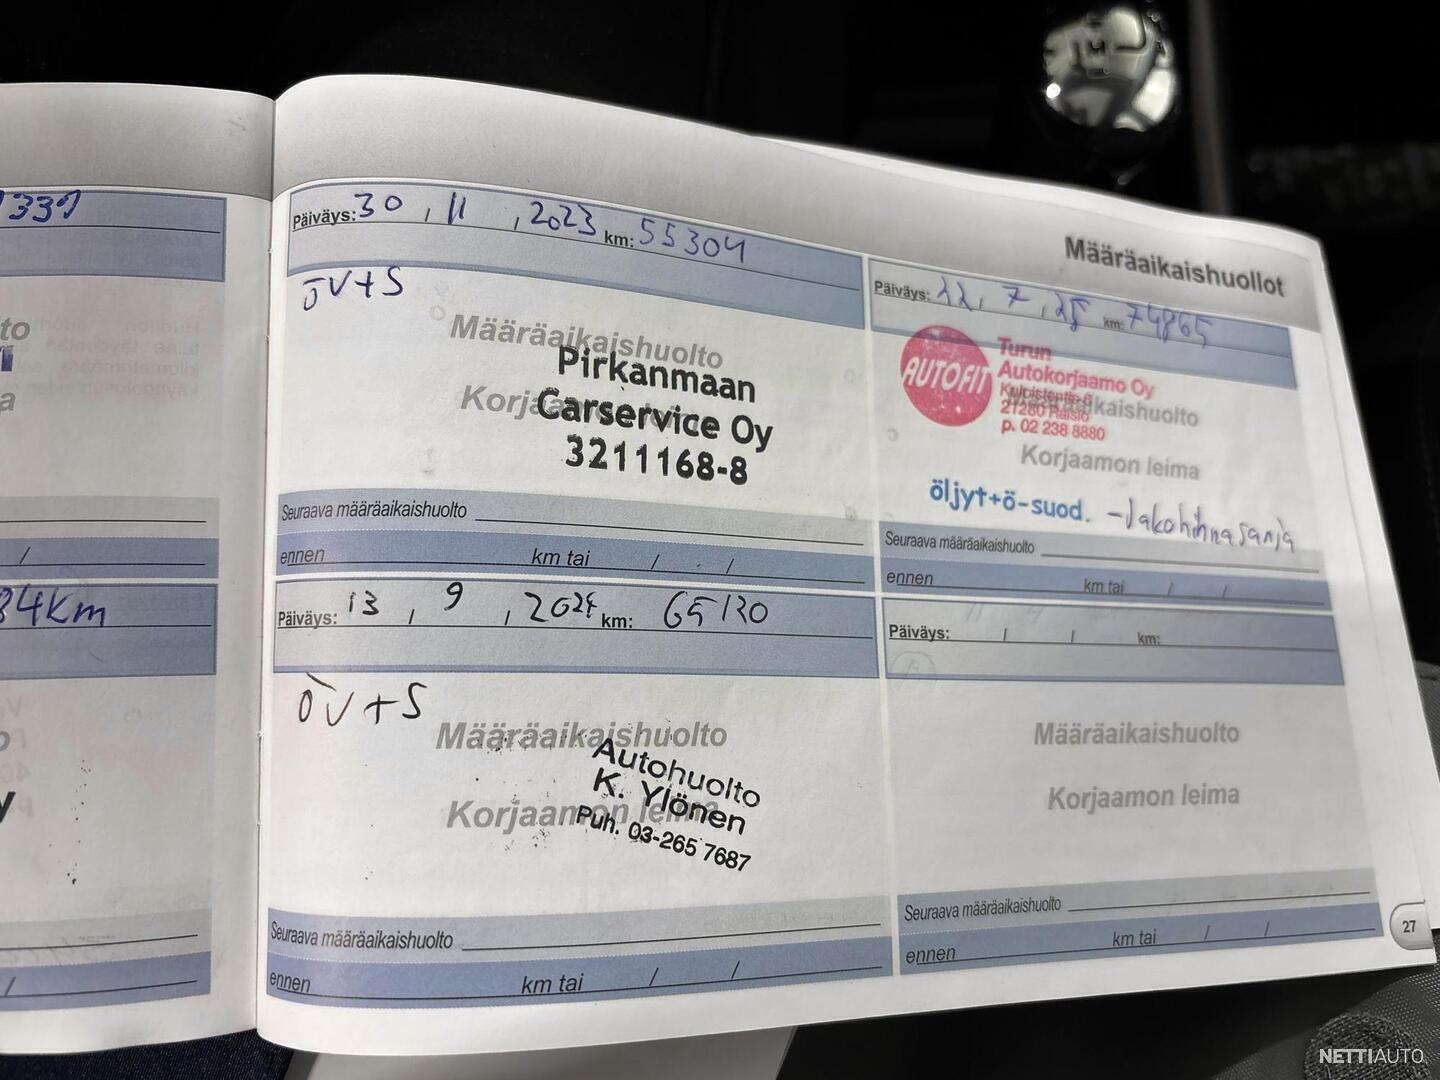 339
to
a
/
34km
y
/
Määräaikaishuollot
Päiväys: 30 , 11 , 2023 km: 55304
öv+s
Määräaikaishuolto
Pirkanmaan
Carservice Oy
3211168-8
Seuraava määräaikaishuolto
ennen km tai / /
Päiväys: 13 , 9 , 2024 km: 65120
öv+s
Määräaikaishuolto
Korjaamon leima
Autohuolto
K. Ylönen
Puh. 03-265 7687
Seuraava määräaikaishuolto
ennen km tai / /
Päiväys: 22 , 7 , 25 km: 74865
AUTOFIT
Turun
Autokorjaamo Oy
21280 Raisio
p. 02 238 8880
Korjaamon leima
öljyt+ö-suod. - Jakohihnasarja
Seuraava määräaikaishuolto
ennen km tai / /
Päiväys: / / km:
Määräaikaishuolto
Korjaamon leima
Seuraava määräaikaishuolto
ennen km tai / /
27
NETTIAUTO